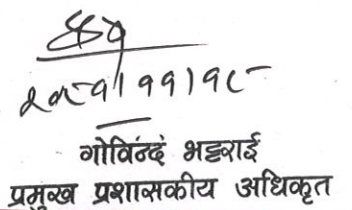 २०८१।११।१८
गोविन्द भट्टराई
प्रमुख प्रशासकीय अधिकृत